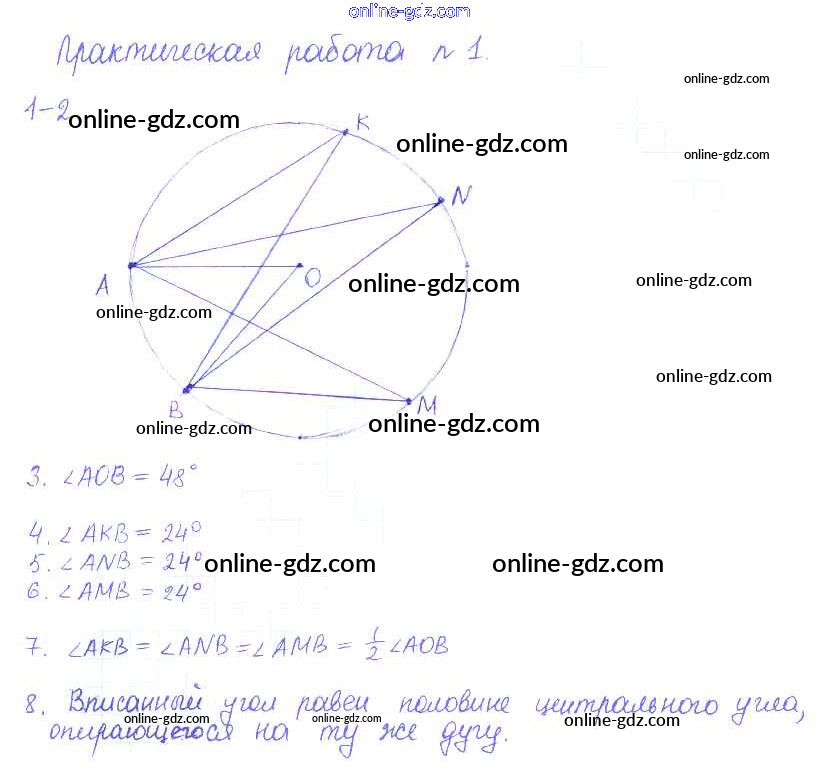 online-gdz.com
Практическая работа №1.
online-gdz.com
1-2
online-gdz.com
K
online-gdz.com
online-gdz.com
N
A
O
online-gdz.com
online-gdz.com
online-gdz.com
online-gdz.com
B
M
online-gdz.com
online-gdz.com
3. ∠AOB = 48°
4. ∠AKB = 24°
5. ∠ANB = 24°
online-gdz.com
online-gdz.com
6. ∠AMB = 24°
7. ∠AKB = ∠ANB = ∠AMB = 1/2 ∠AOB
8. Вписанный угол равен половине центрального угла,
online-gdz.com
online-gdz.com
online-gdz.com
опирающегося на ту же дугу.